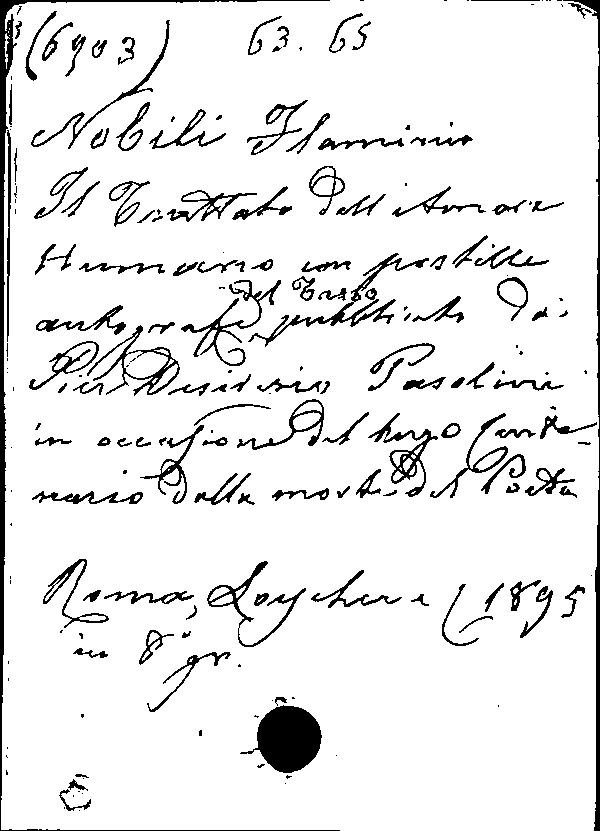 (6903) 63. 65
Nobili Flaminio
Il Trattato dell'Amore
Humano con postille
autografe del Tasso pubblicato da
Pier Desiderio Pasolini
in occasione del terzo Cente-
nario della morte del Poeta
Roma, Loescher e C 1895
in 8° gr.